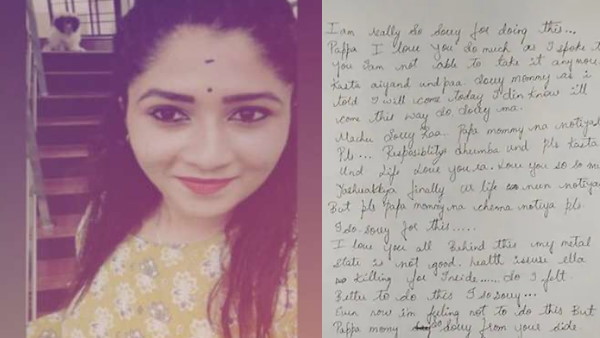 I am really so sorry for doing this...
Pappa I love you so much as I spoke to
you I am not able to take it anymore
Kasta aiyand undpaa. Sorry mommy as i
told I will come today I din know i'll
come this way so sorry ma.
Machu Sorry kaa. Papa mommy na notiya
Pls... Resposiblitys dhumba und pls kasta
Und life love you sa. Love you so so mu
finally life nun notiya
But pls papa mommy na chenna notiya pls
I so sorry for this.....
I love you all Behind this my metal
state is not good. health issuse ella
Killing for Inside...... So I felt
Better to do this I so sorry...
Even now i'm feling not to do this But
Pappa mommy so sorry from your side.